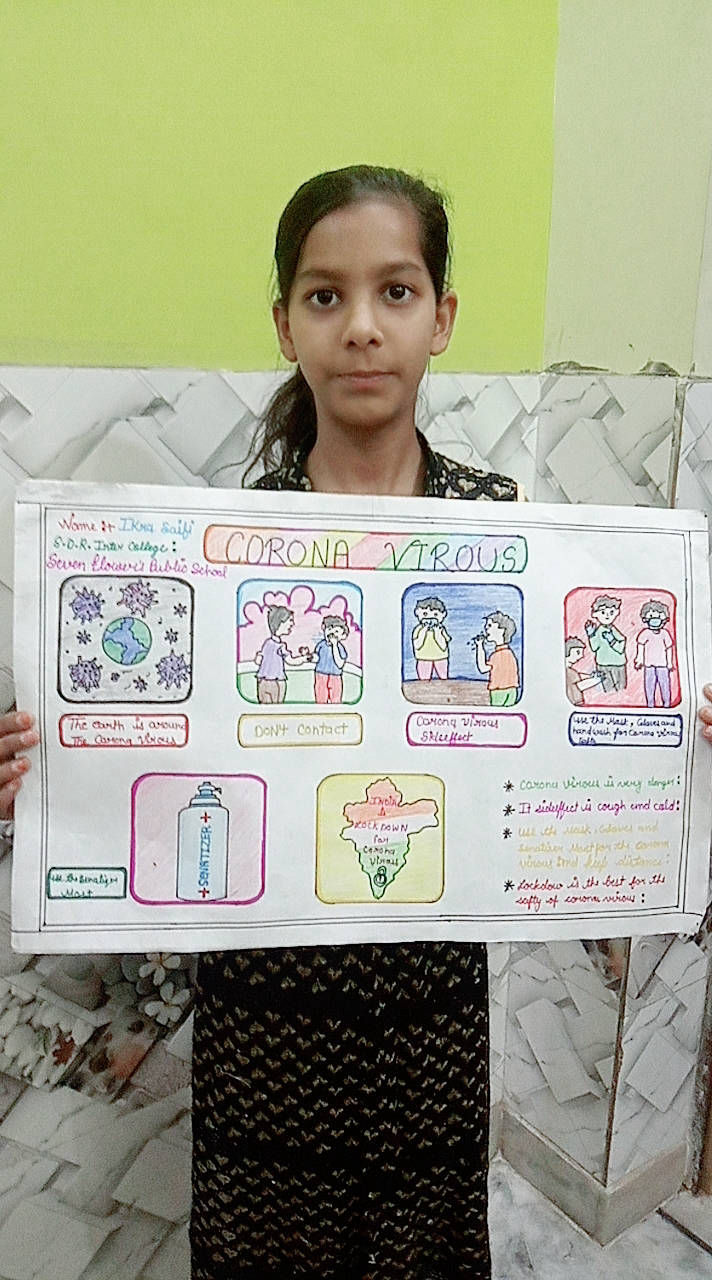 Name :→ Ikra Saifi
S.D.R. Inter College:
Seven flower's Public School
CORONA VIROUS
The earth is around
The Carona Virous
DON't CONTACT
Carona Virous
Sideffect
use the Mask, Gloves and
handwash for Carona Virous
Safty
SENATIZER
use the Senatizer
Most
INDIA
is
LOCKDOWN
for
Carona
Virous
* Carona virous is very danger:
* It sideffect is cough and cold:
* use the Mask, Gloves and
Senatizer Most for the carona
virous and keep distance:
* Lockdow is the best for the
safty of carona virous: